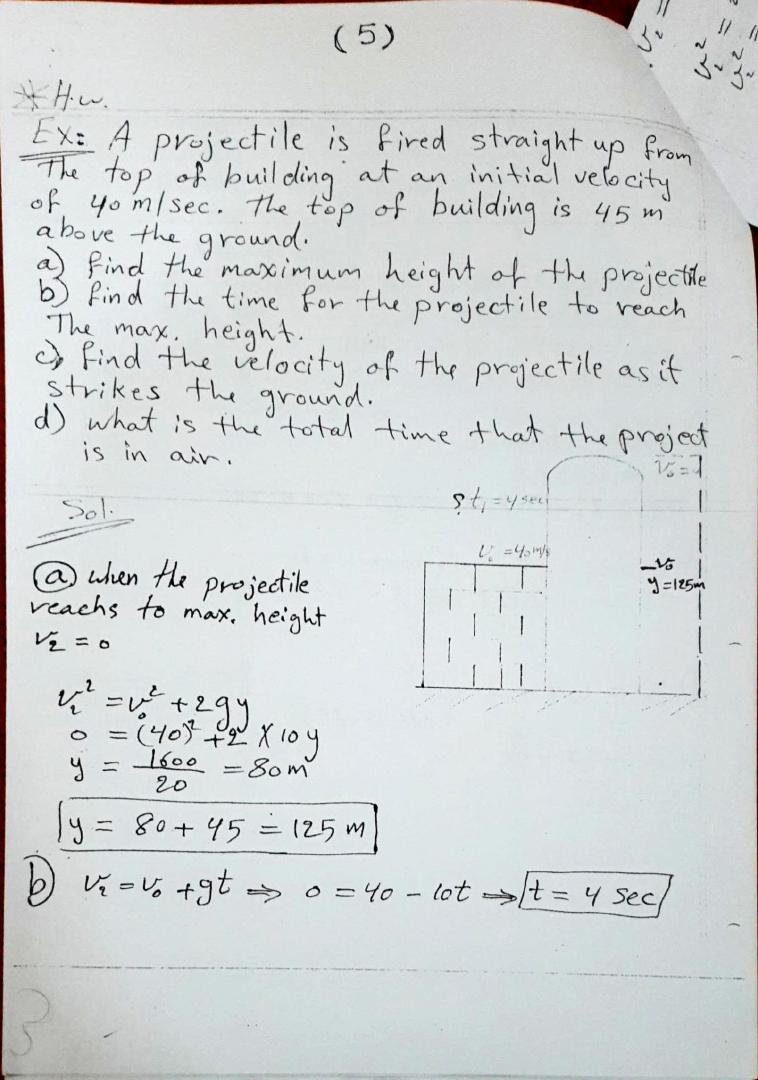 (5)
* H.w.
Ex: A projectile is fired straight up from
The top of building at an initial velocity
of 40 m/sec. The top of building is 45 m
above the ground.
a) find the maximum height of the projectile
b) find the time for the projectile to reach
The max. height.
c) find the velocity of the projectile as it
strikes the ground.
d) what is the total time that the project
is in air.
Sol.
t₁ = 4 sec
V₀ = 40 m/s
y = 125m
(a) when the projectile
reachs to max. height
V₂ = 0
V₂² = V₀² + 2gy
0 = (40)² + 2 X 10 y
y = 1600/20 = 80m
y = 80 + 45 = 125 m
b) V₂ = V₀ + gt ⇒ 0 = 40 - 10t ⇒ t = 4 sec
3